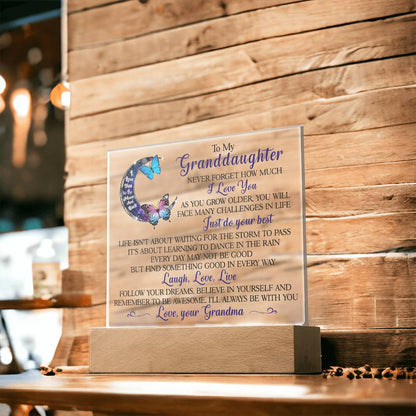 To My
Granddaughter
NEVER FORGET HOW MUCH
I Love You
AS YOU GROW OLDER, YOU WILL
FACE MANY CHALLENGES IN LIFE
Just do your best
LIFE ISN'T ABOUT WAITING FOR THE STORM TO PASS
IT'S ABOUT LEARNING TO DANCE IN THE RAIN
EVERY DAY MAY NOT BE GOOD
BUT FIND SOMETHING GOOD IN EVERY WAY
Laugh, Love, Live
FOLLOW YOUR DREAMS, BELIEVE IN YOURSELF AND
REMEMBER TO BE AWESOME, I'LL ALWAYS BE WITH YOU
Love, your Grandma
I Love You To The Moon And Back